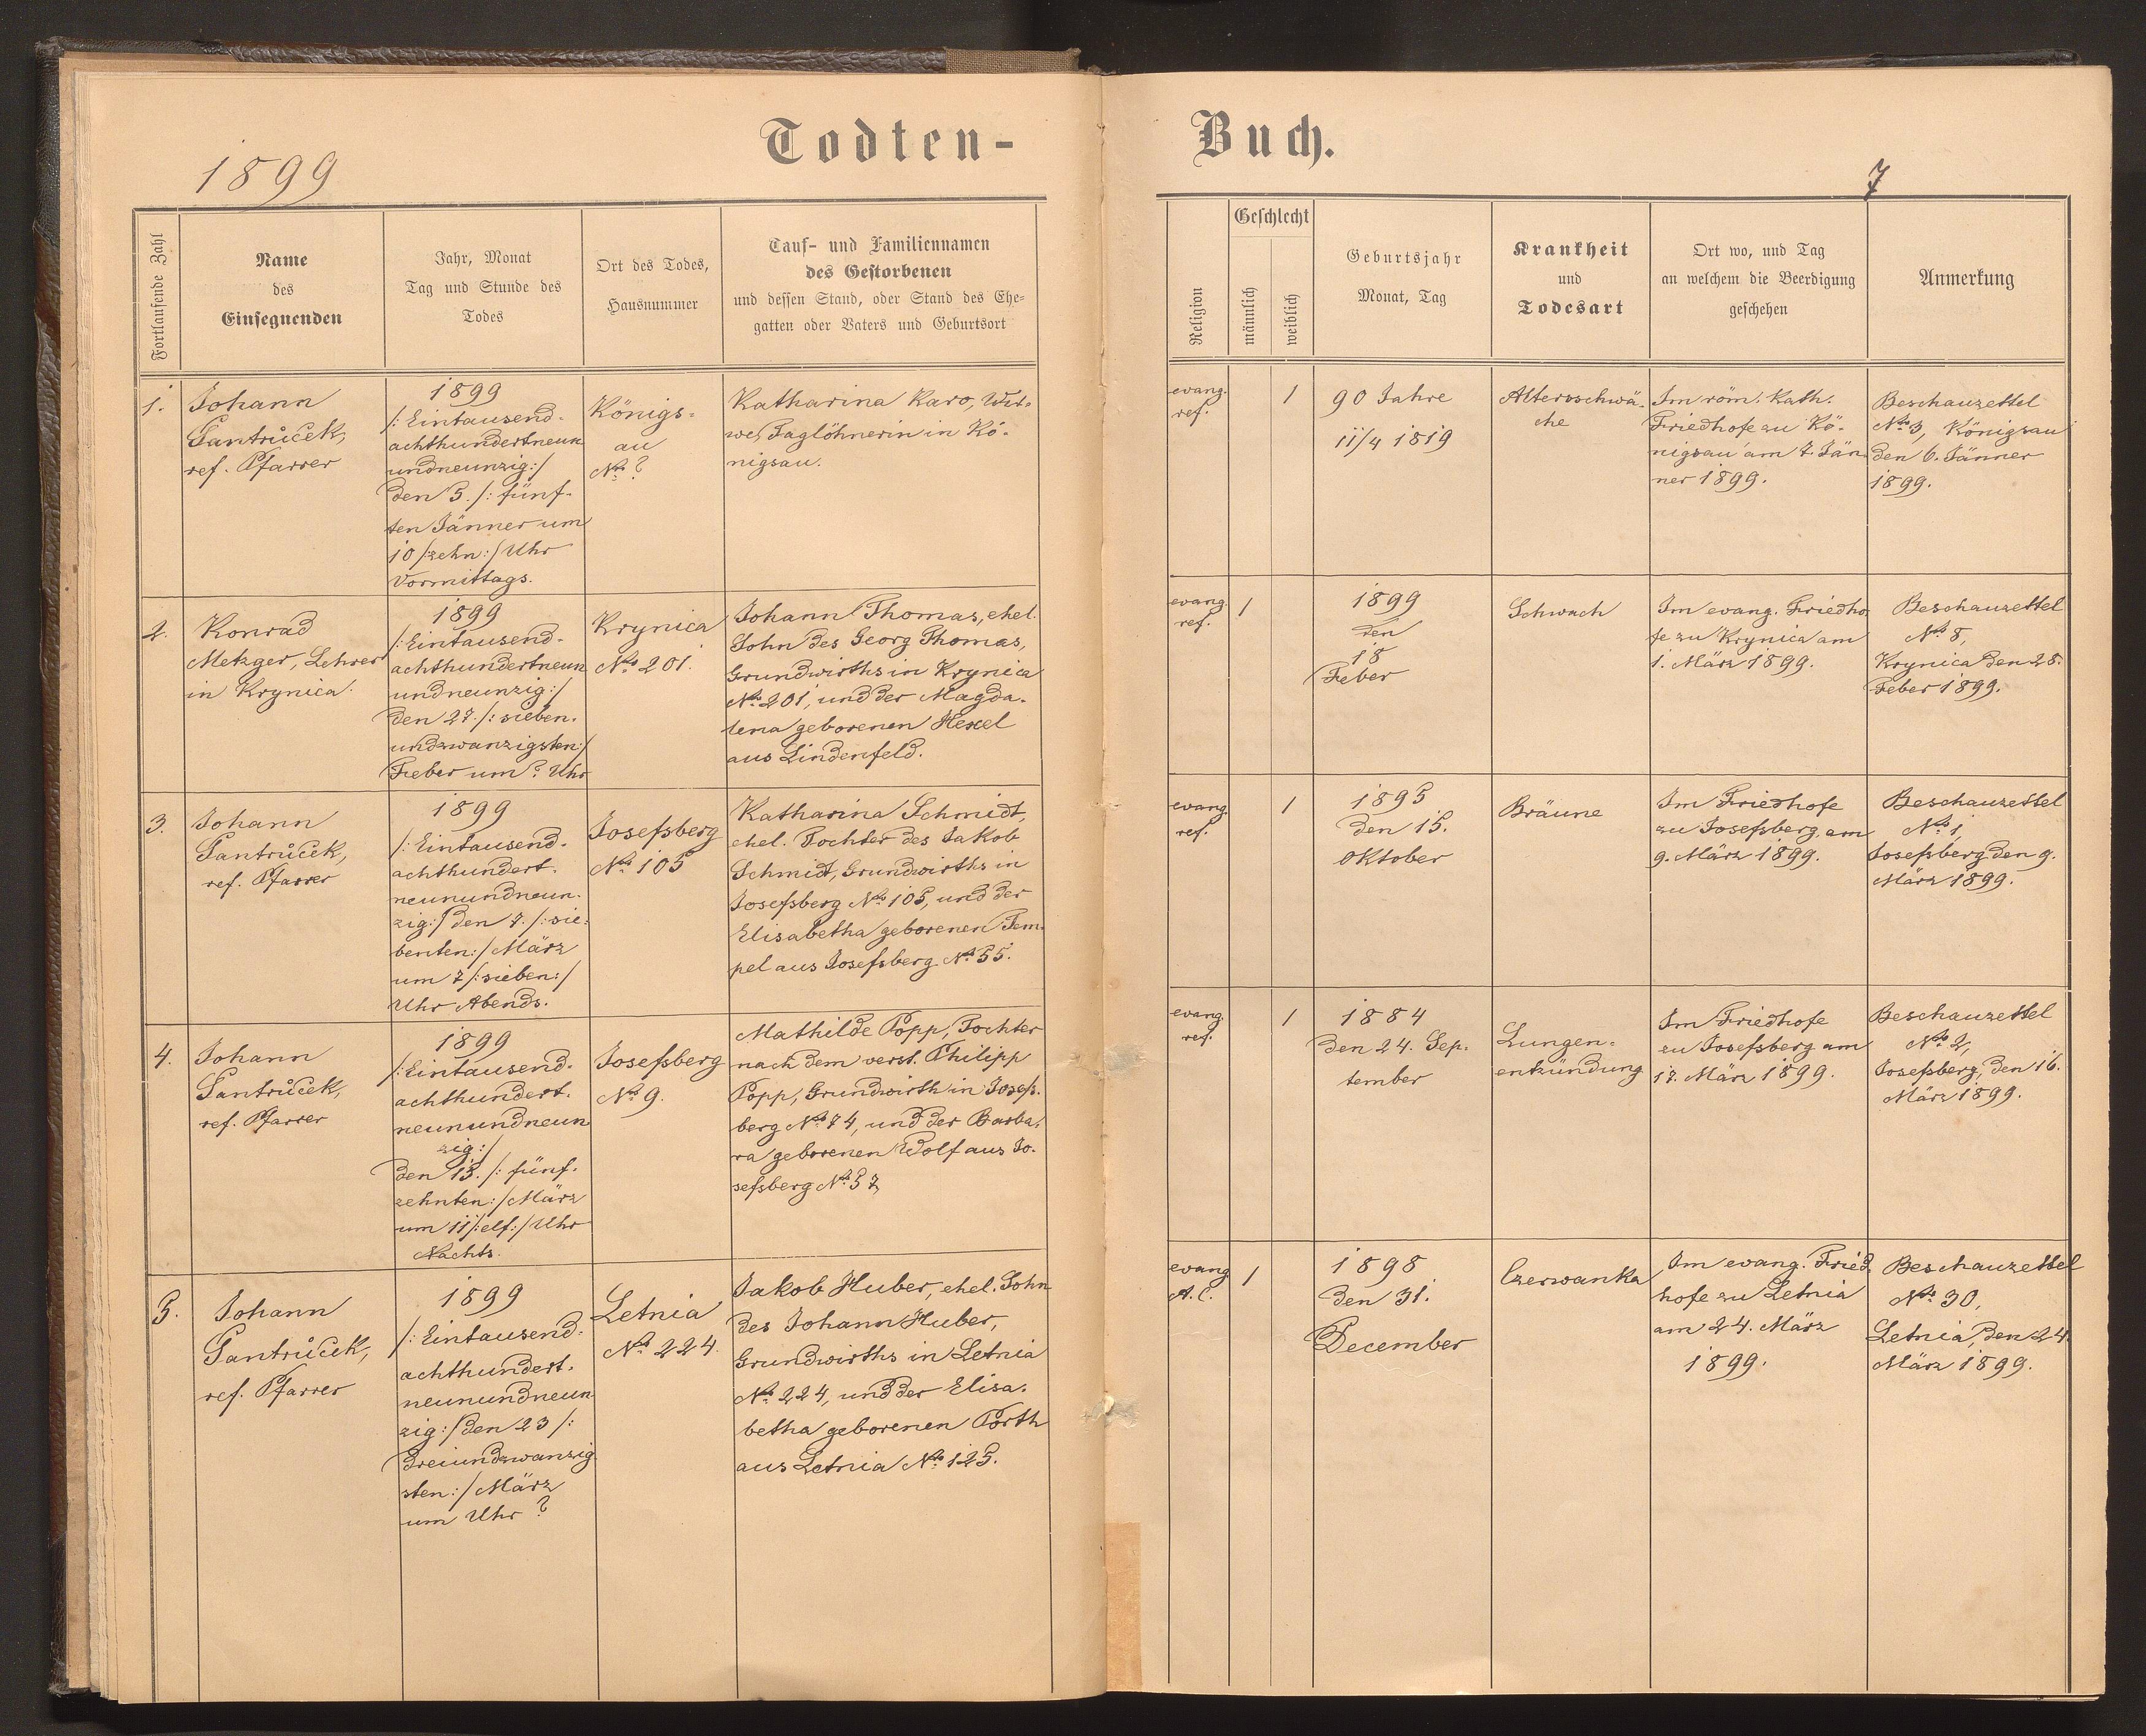 1899
Todten-
Buch.
7
Fortlaufende Zahl
Name
des
Einsegnenden
Jahr, Monat
Tag und Stunde des
Todes
Ort des Todes,
Hausnummer
Tauf- und Familiennamen
des Gestorbenen
und dessen Stand, oder Stand des Ehe-
gatten oder Vaters und Geburtsort
Religion
Geschlecht
männlich
weiblich
Geburtsjahr
Monat, Tag
Krankheit
und
Todesart
Ort wo, und Tag
an welchem die Beerdigung
geschehen
Anmerkung
1.
Johann
Jantrůček,
ref. Pfarrer
1899
/:Eintausend-
achthundertneun
undneunzig:/
den 5. /: fünf-
ten Jänner um
10 /zehn:/ Uhr
Vormittags.
Königs-
au
No ?
Katharina Karo, Wit-
we, Taglöhnerin in Kö-
nigsau.
evang.
ref.
1
90 Jahre
11/4 1819
Altersschwä-
che
Im röm. kath.
Friedhofe zu Kö-
nigsau am 7. Jän
ner 1899.
Beschauzettel
No 3, Königsau
den 6. Jänner
1899.
2.
Konrad
Metzger, Lehrer
in Krynica.
1899
/:Eintausend-
achthundertneun
undneunzig:/
den 27. /: sieben-
undzwanzigsten:/
Feber um ? Uhr
Krynica
No 201.
Johann Thomas, ehel.
Sohn des Georg Thomas,
Grundwirths in Krynica
No 201, und der Magda-
lena geborenen Hexel
aus Lindenfeld.
evang.
ref.
1
1899
den
18
Feber
Schwach
Im evang. Friedho
fe zu Krynica am
1. März 1899.
Beschauzettel
No 8,
Krynica den 28.
Feber 1899.
3.
Johann
Jantrůček,
ref. Pfarrer
1899
/:Eintausend-
achthundert-
neunundneun-
zig:/ den 7. /: sie-
benten:/ März
um 7 /:sieben:/
Uhr Abends.
Josefsberg
No 105
Katharina Schmidt,
ehel. Tochter des Jakob
Schmidt, Grundwirths in
Josefsberg No 105, und der
Elisabetha geborenen Tem-
pel aus Josefsberg No 55.
evang.
ref.
1
1895
den 15.
Oktober
Bräune
Im Friedhofe
zu Josefsberg am
9. März 1899.
Beschauzettel
No 1,
Josefsberg den 9.
März 1899.
4.
Johann
Jantrůček,
ref. Pfarrer
1899
/:Eintausend-
achthundert-
neunundneun
zig:/
den 15. /: fünf-
zehnten:/ März
um 11 /:elf:/ Uhr
Nachts.
Josefsberg
No 9.
Mathilde Popp, Tochter
nach dem verst. Philipp
Popp, Grundwirth in Josefs-
berg No 74, und der Barba-
ra geborenen Wolf aus Jo-
sefsberg No 57
evang.
ref.
1
1884
den 24. Sep-
tember
Lungen-
entzündung
Im Friedhofe
zu Josefsberg am
17. März 1899.
Beschauzettel
No 2,
Josefsberg, den 16.
März 1899.
5.
Johann
Jantrůček,
ref. Pfarrer
1899
/:Eintausend-
achthundert-
neunundneun
zig:/ den 23 /:
dreiundzwanzig
sten:/ März
um Uhr ?
Letnia
No 224.
Jakob Huber, ehel. Sohn
des Johann Huber,
Grundwirths in Letnia
No 224, und der Elisa-
betha geborenen Porth
aus Letnia No 125.
evang
A. C.
1
1898
den 31.
December
Czerwanka
Im evang. Fried-
hofe zu Letnia
am 24. März
1899.
Beschauzettel
No 30,
Letnia, den 24.
März 1899.